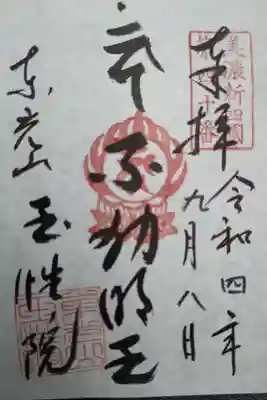 美濃新四国
第四十番
奉拝
令和四年
九月八日
不動明王
東光山
玉性院